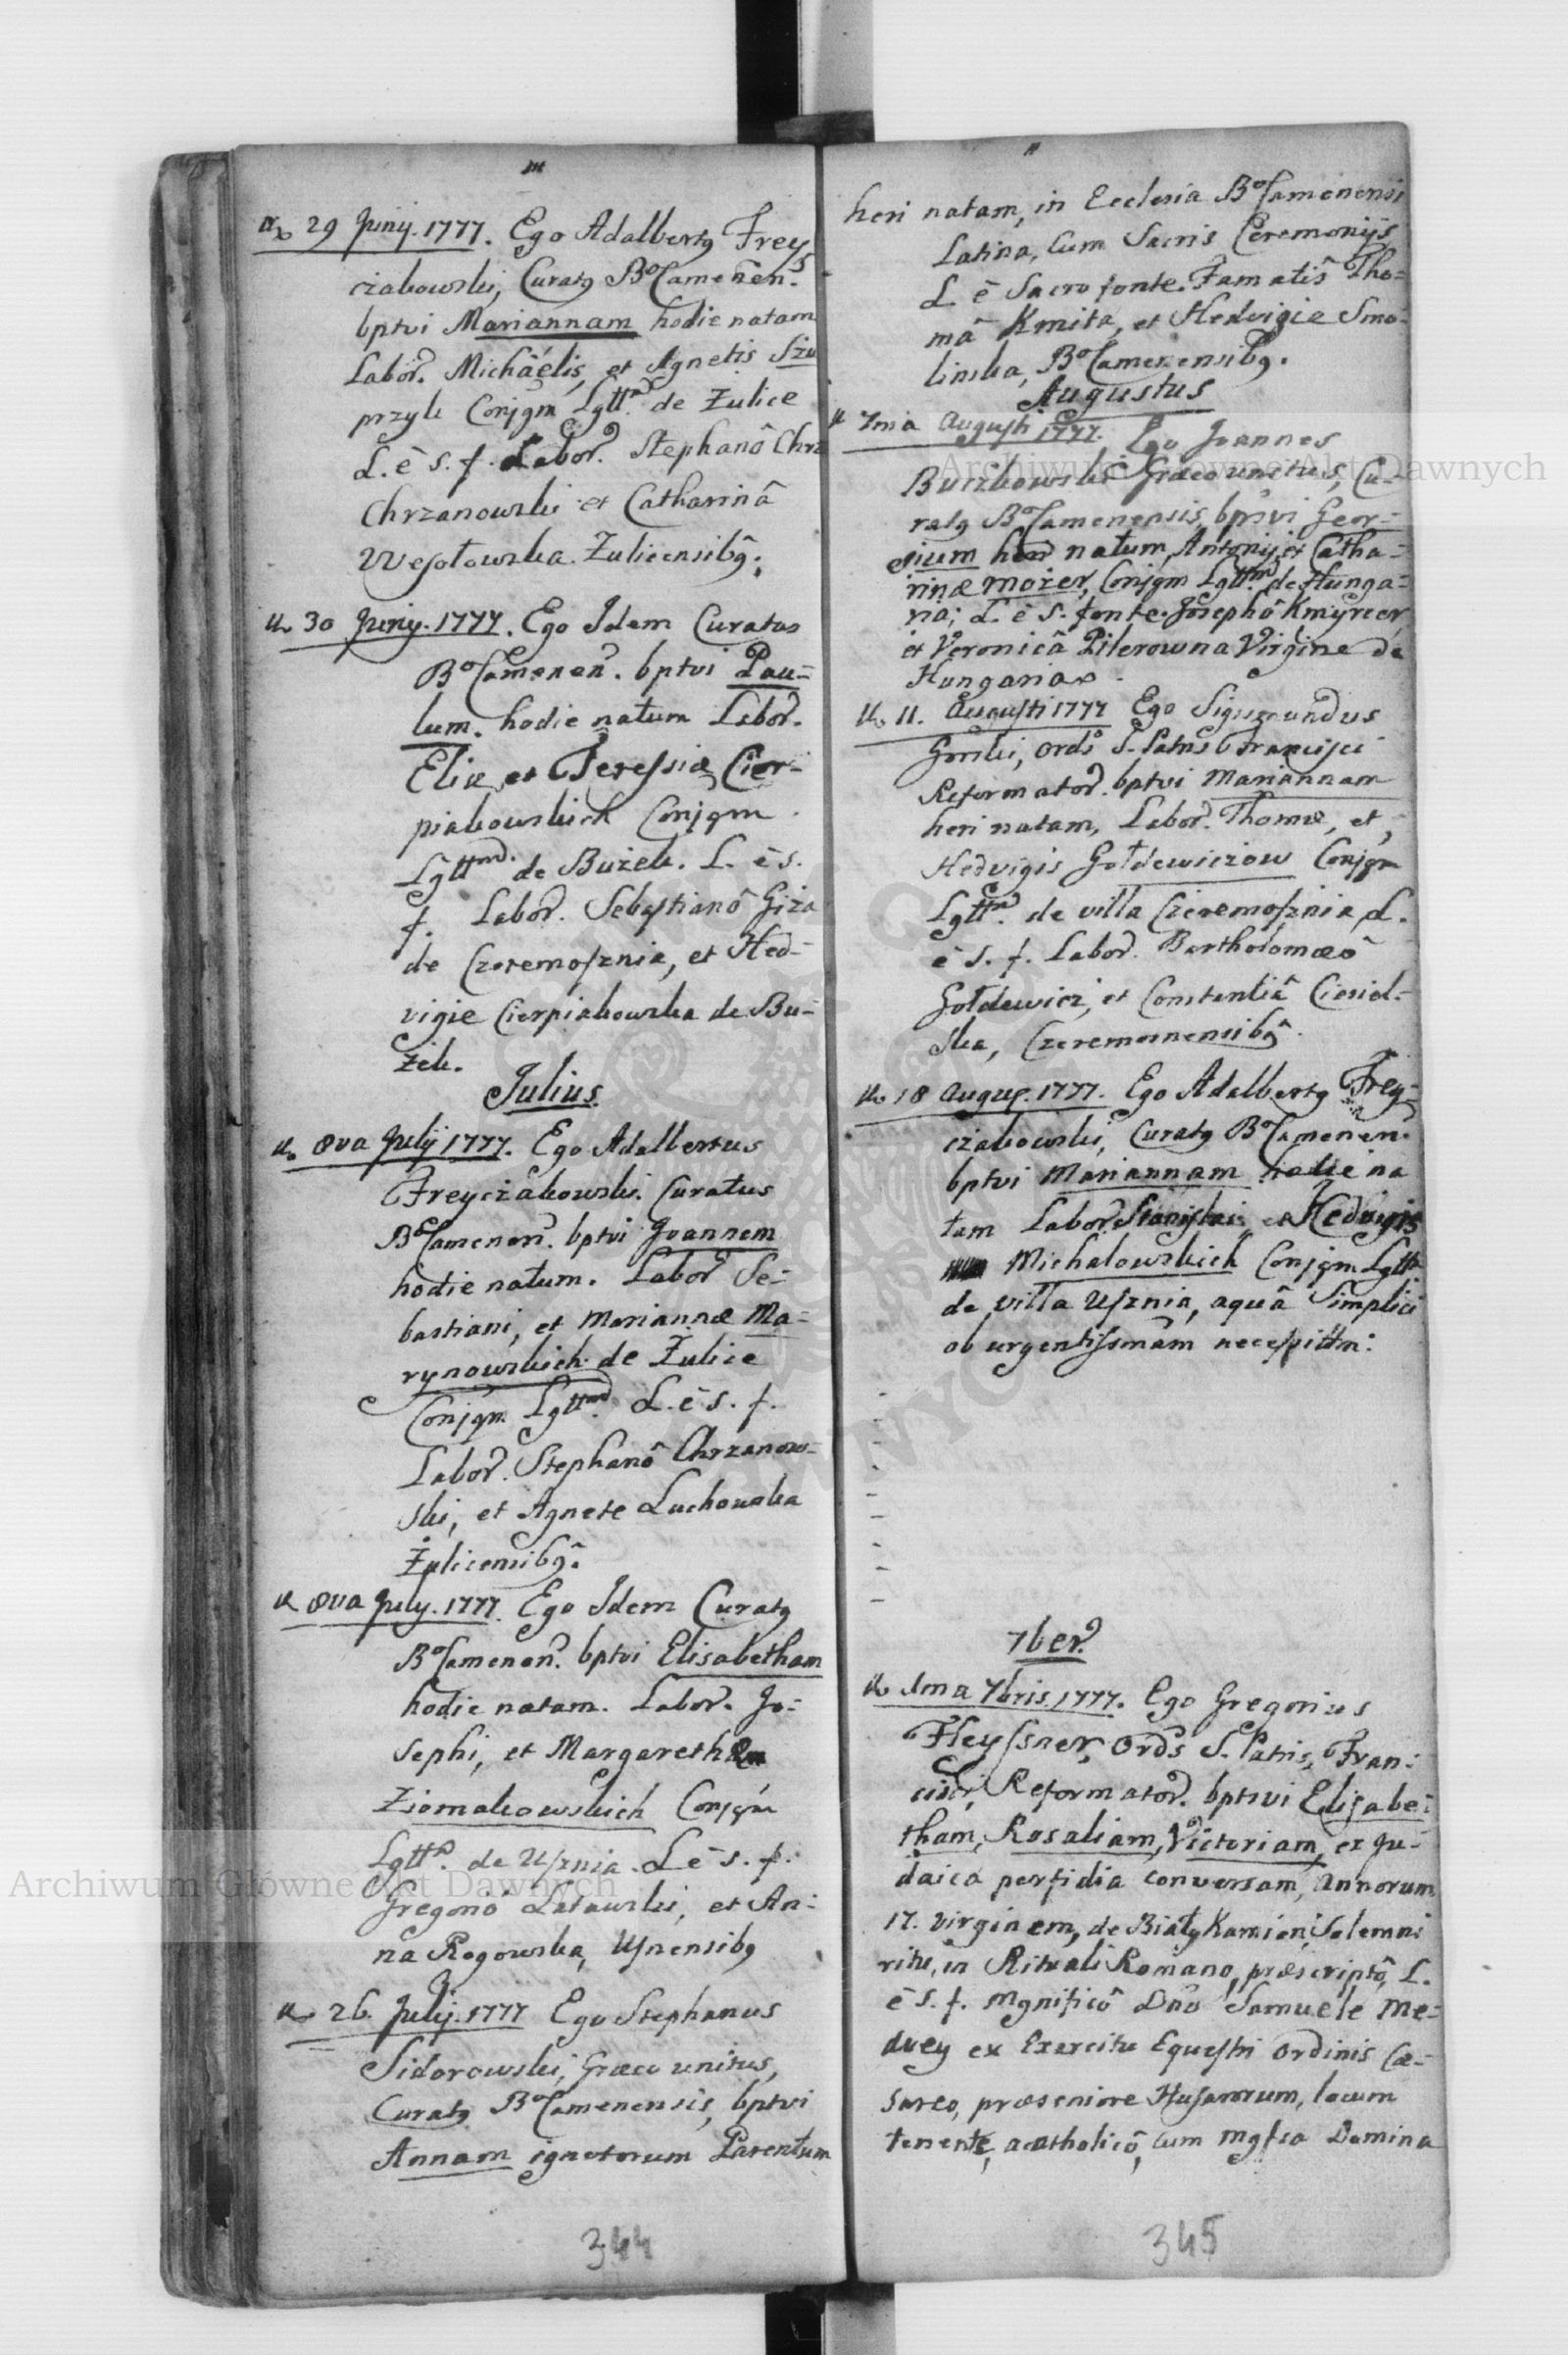 29 Junij. 1777. Ego Adalbertq Frey
czakowski, Curatq BoCamenen.
bptvi Mariannam hodie natam
Labor. Michaëlis, et Agnetis Szu
przyk Conjgm Lgttm. de Żulice
L. è s. f. Labor. Stephanô Chrz
Chrzanowski et Catharinâ
Wesołowska. Żulicensibq.
30 Junij. 1777. Ego Idem Curatus
BoCamenen. bptvi Pau=
lum. hodie natum Labor.
Eliæ, et Teressiæ Cier=
piakowskich Conjgm
Lgttm. de Bużek. L. è s.
f. Labor. Sebastianô Giza
de Czeremosznia, et Hed=
vigie Cierpiakowska de Bu=
żek.
Julius.
8va Julij 1777. Ego Adalbertus
Freyczakowski. Curatus
BoCamenen. bptvi Joannem
hodie natum. Labor Se=
bastiani, et Mariannæ Ma=
rynowskich de Żulice
Conjgm Lgttm. L. è s. f.
Labor. Stephanô Chrzanow=
ski, et Agnete Luchowska
Żulicensibq.
8va July. 1777. Ego Idem Curatq
BoCamenen. bptvi Elisabetham
hodie natam. Labor. Jo=
sephi, et Margarethæ
Ziomakowskich Conjgm
Lgttm. de Usznia. L è s. f.
Gregoriô Latawski, et An=
na Rogowska, Usnensibq
26. Julij. 1777 Ego Stephanus
Sidorowski, Græco unitus,
Curatq BoCamenensis, bptvi
Annam ignotorum Parentum
344
heri natam, in Ecclesia BoCamenensi
Latina, cum Sacris Ceremonijs
L è Sacro fonte. Famatis Tho=
mâ Kmita, et Hedvigie Smo=
linska, BoCamenensibq.
Augustus
7ma Augusti 1777. Ego Joannes
Buczkowski Græco unitus, Cu=
ratq BoCamenensis, bptvi Geor=
gium heri natum, Antonij, et Catha=
rinæ Mozer, Conjgm Lgttm de Hunga=
ria; L. è s. fonte. Josephô Kmyrecr
et Veronicâ Pilerowna Virgine de
Hungaria.
11. Augusti 1777 Ego Sigismundus
Gorski, Ords S. Patris Francisci
Reformator. bptvi Mariannam
heri natam, Labor. Thomæ, et,
Hedvigis Gołdewiczow Conjgm
Lgttm. de villa Czeremosznia, L.
è s. f. Labor. Bartholomæô
Gołdewicz, et Constantiâ Ciesiel=
ska, Czeremosnensibq.
18 Augus. 1777. Ego Adalbertq Frey=
czakowski, Curatq BoCamenen.
bptvi Mariannam hodie na
tam Labor. Stanislai, et Hedvigis
Michalowskich Conjgm Lgttm
de villa Usznia, aquâ Simplici
ob urgentissmam necessittm:
7ber.
1ma 7bris. 1777. Ego Gregorius
Fleyssner, Ords S. Patris, Fran=
cisci, Reformator. bptvi Elisabe=
tham, Rosaliam, Victoriam, ex Ju=
daica perfidia conversam, Annorum
17. Virginem, de Biały Kamien, Solemni
ritu, in Rituali Romano, præscriptô, L.
è s. f. Mgnificô Dnô Samuele Me=
dvey ex Exercitu Equestri Ordinis Cæ=
sareo, præseniore Husarorum, locum
tenente, acatholicô, cum Mgfca Domina
345
Archiwum Główne Akt Dawnych
Archiwum Główne Akt Dawnych